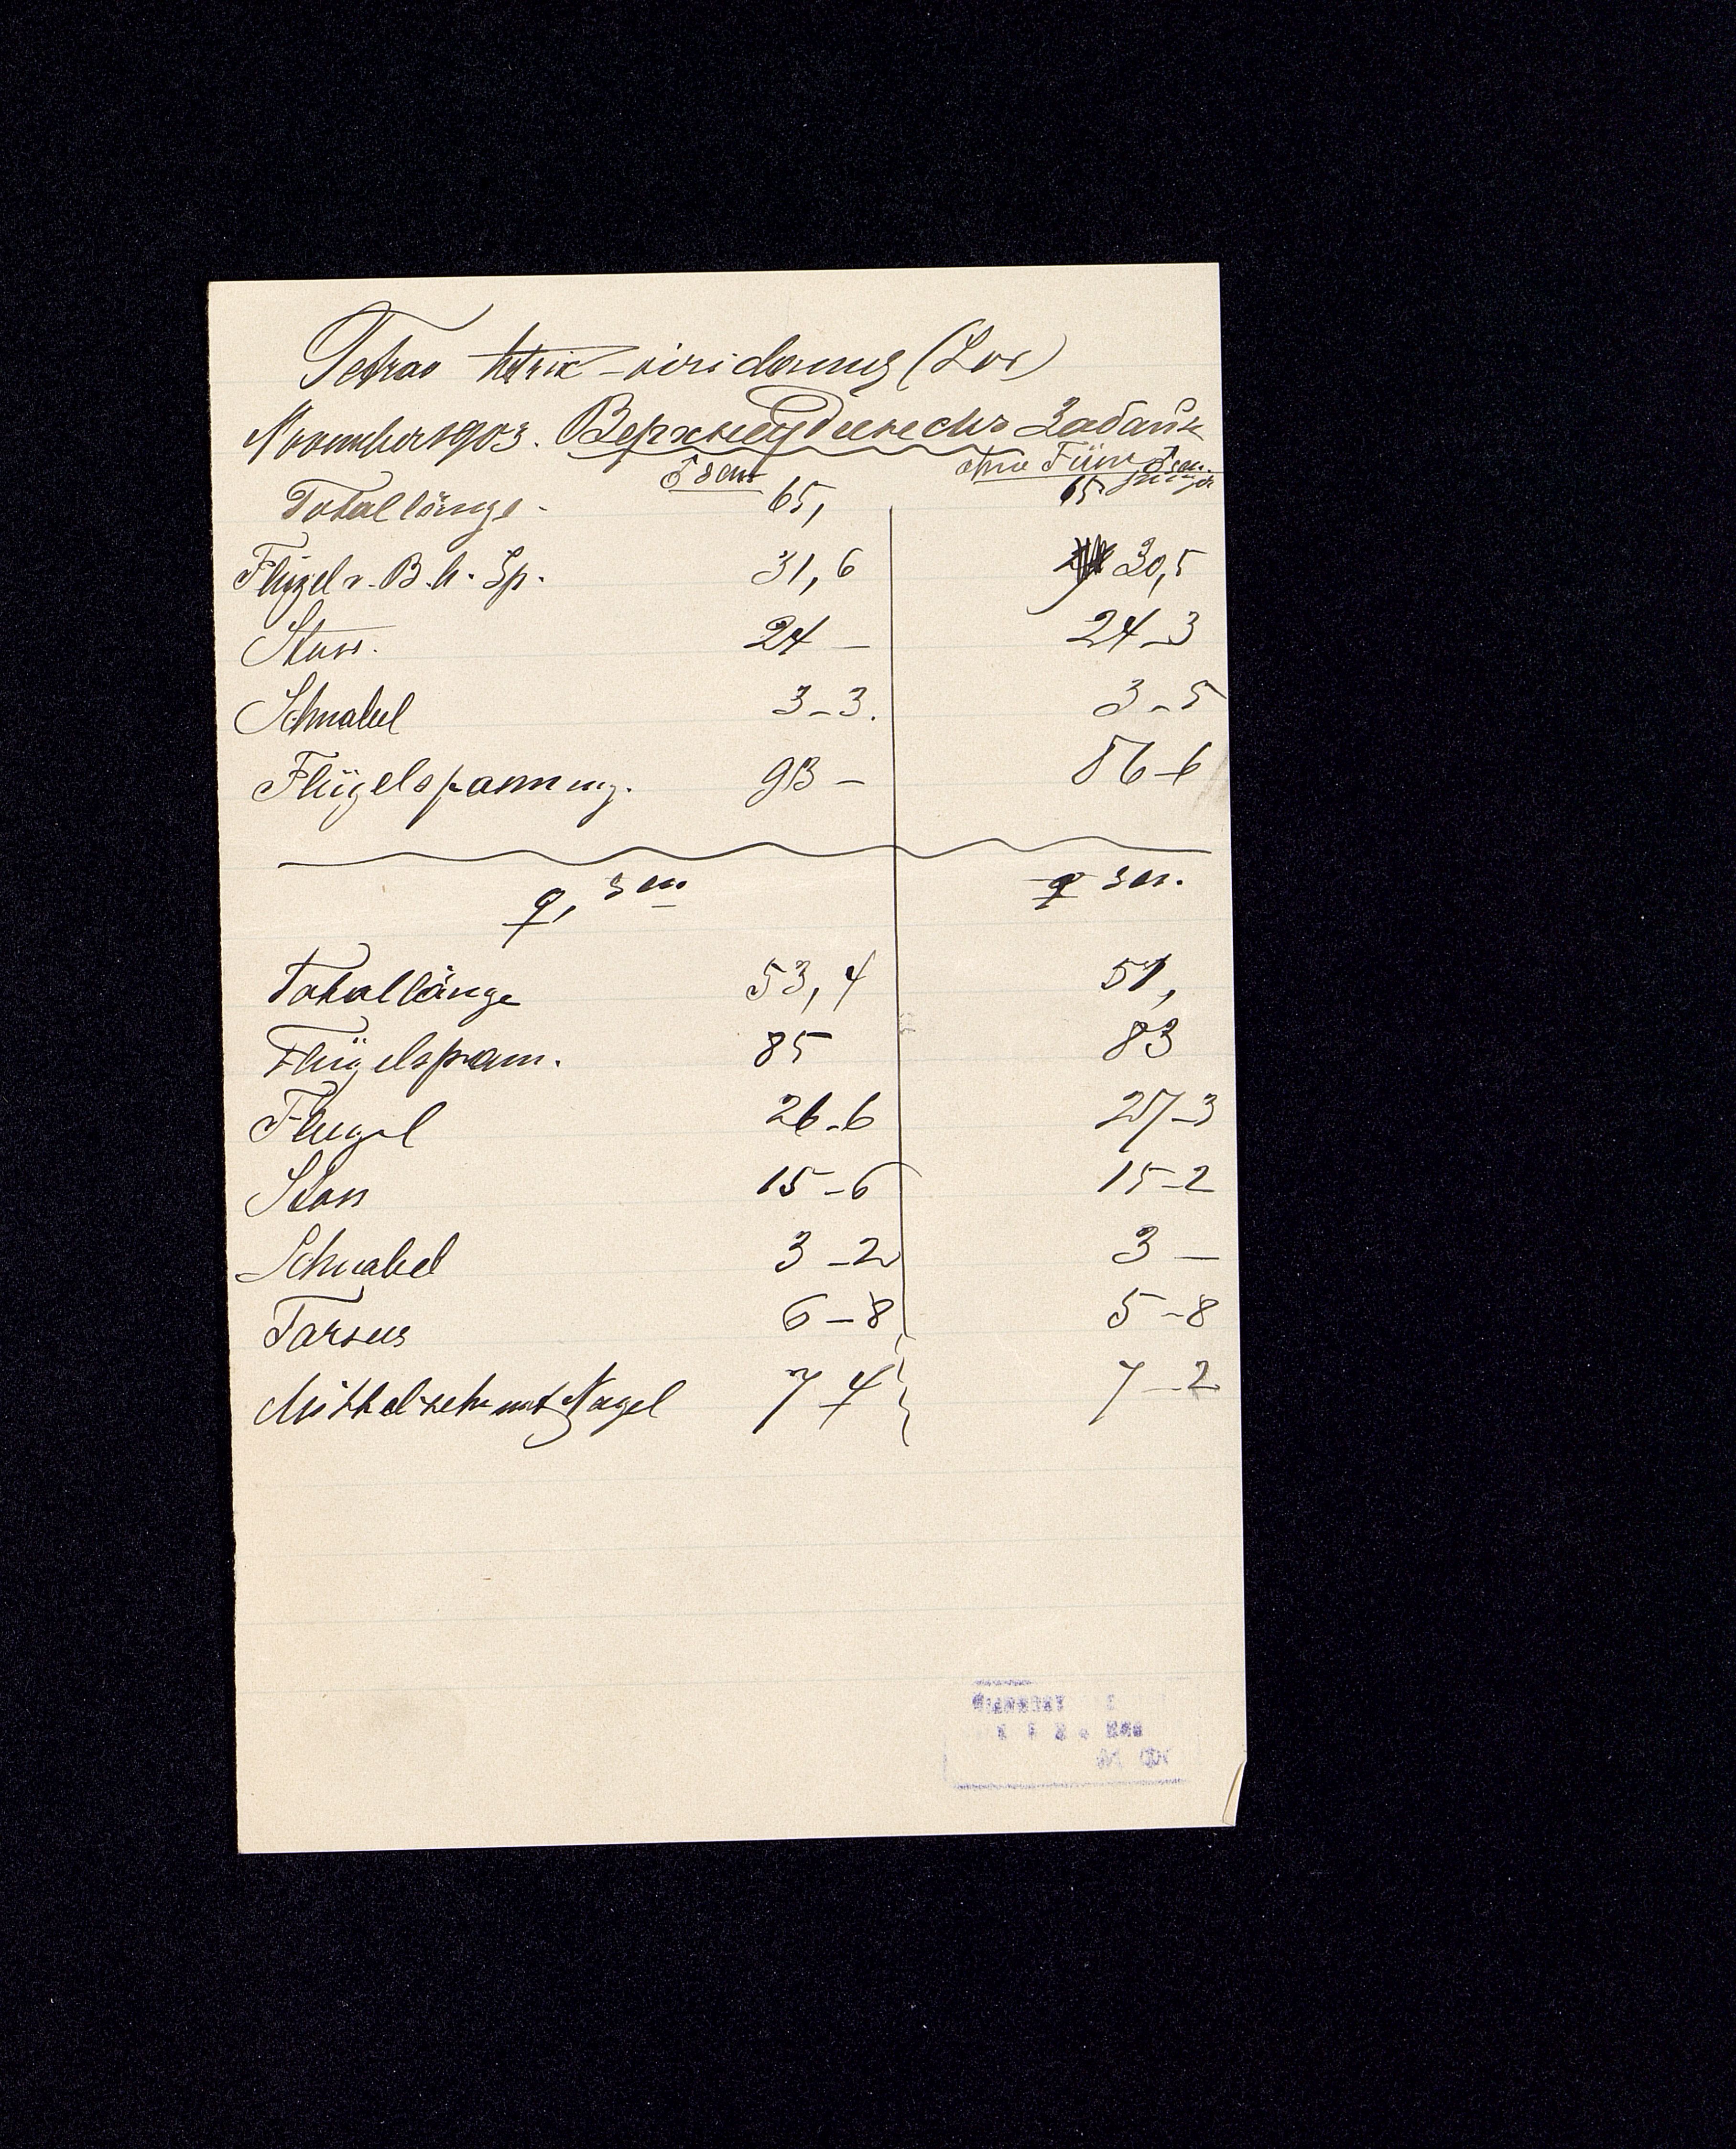 Tetrao tetrix-viridanus (Lor)
November 1903. Верхнеудинскъ Забайк
♂ sen ohne Füsse ♂ sen.
Totallänge - 65, 65
Flügel v. B. h. Sp. 31,6 30,5
Stoss. 24 - 24-3
Schnabel 3-3. 3-5
Flügelspannung. 93 - 86-6
♀, sen ♀ sen.
Totallänge 53,4 51,
Flügelspann. 85 83
Flügel 26-6 27-3
Stoss 15-6 15-2
Schnabel 3-2 3 -
Tarsus 6-8 5-8
Mittelzehe mit Nagel 7 4 7-2